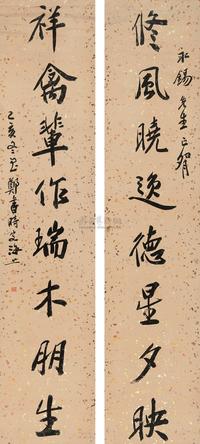 永錫先生正
修風曉逸德星夕映
祥禽輩作瑞木朋生
乙亥冬至鄭 時客海上